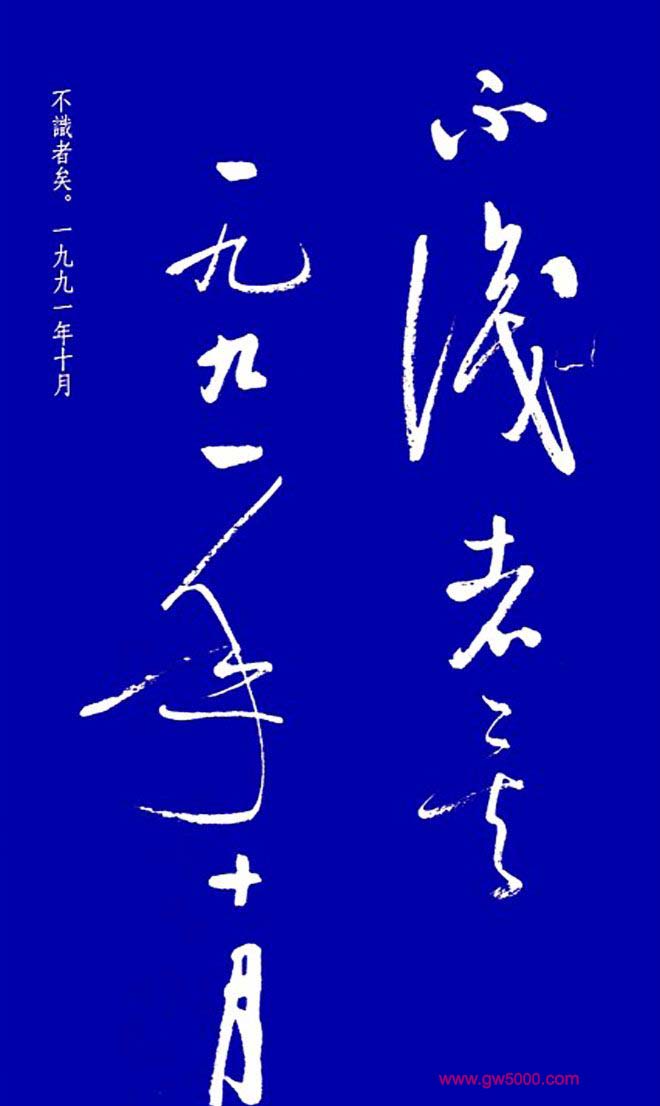 不識者矣
一九九一年十月
不識者矣。一九九一年十月
www.gw5000.com